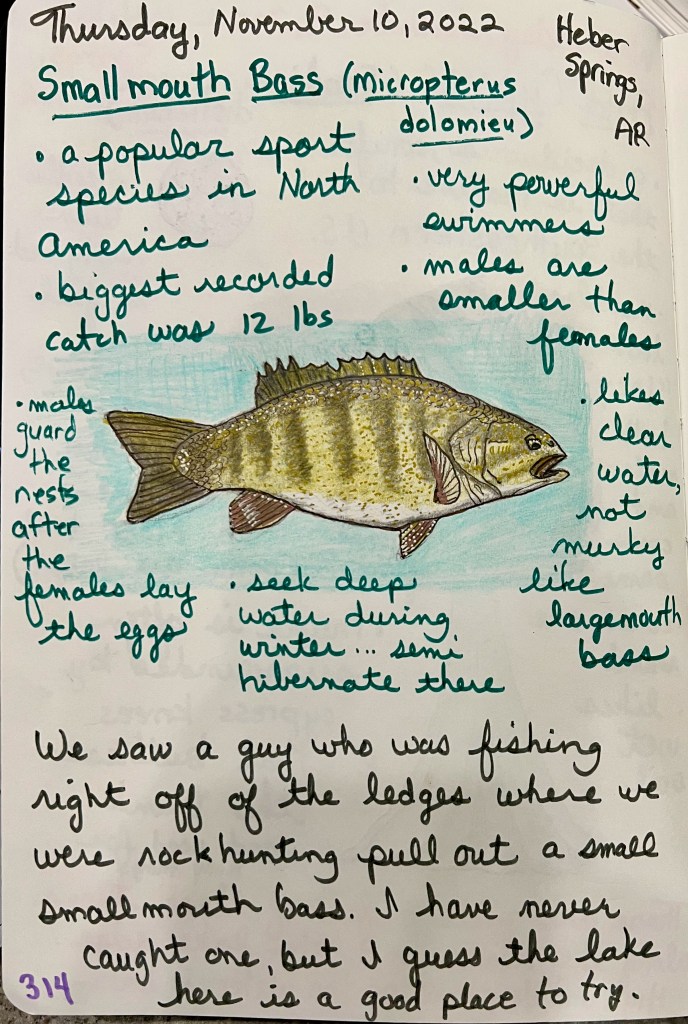 Thursday, November 10, 2022
Heber
Springs,
AR
Smallmouth Bass (micropterus
dolomieu)
• a popular sport
species in North
America
• biggest recorded
catch was 12 lbs
• very powerful
swimmers
• males are
smaller than
females
• males
guard
the
nests
after
the
females lay
the eggs
• seek deep
water during
winter... semi
hibernate there
• likes
clear
water,
not
murky
like
largemouth
bass
We saw a guy who was fishing
right off of the ledges where we
were rockhunting pull out a small
smallmouth bass. I have never
caught one, but I guess the lake
here is a good place to try.
314